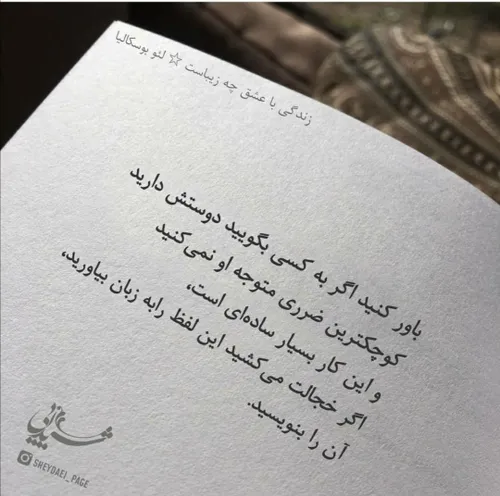 زندگی با عشق چه زیباست ☆ لئو بوسکالیا
باور کنید اگر به کسی بگویید دوستش دارید
کوچکترین ضرری متوجه او نمی‌کنید
و این کار بسیار ساده‌ای است،
اگر خجالت می‌کشید این لفظ رابه زبان بیاورید،
آن را بنویسید.
SHEYDAEI_PAGE